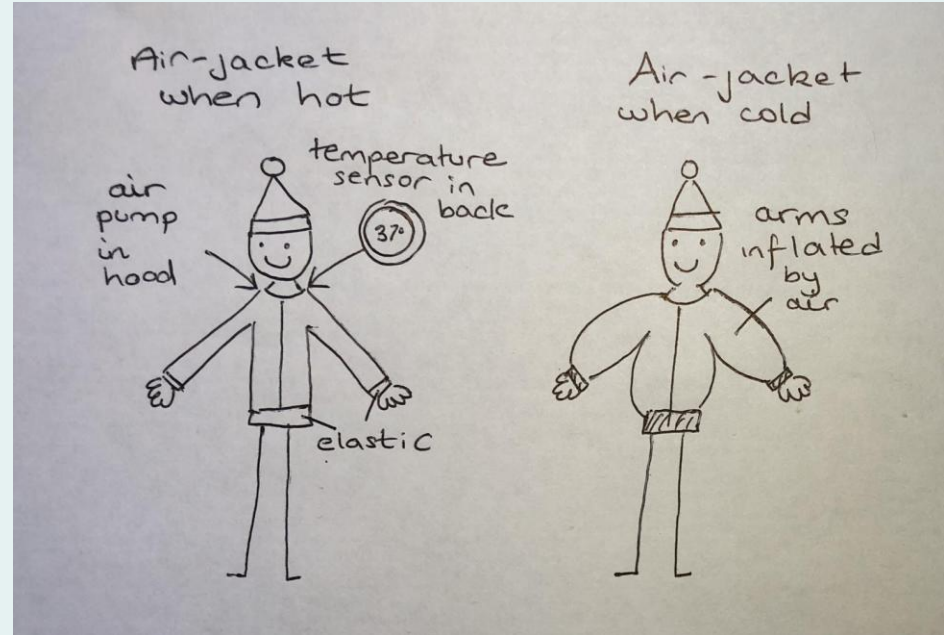 Air-jacket
when hot
air
pump
in
hood
temperature
sensor in
back
37°
elastic
Air-jacket
when cold
arms
inflated
by
air